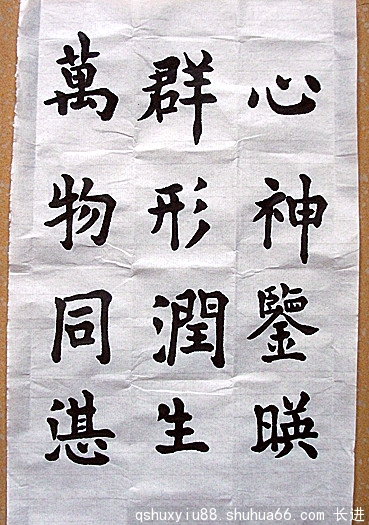 心神鑒暎
群形潤生
萬物同湛
qshuxyiu88.shuhua66.com 长进